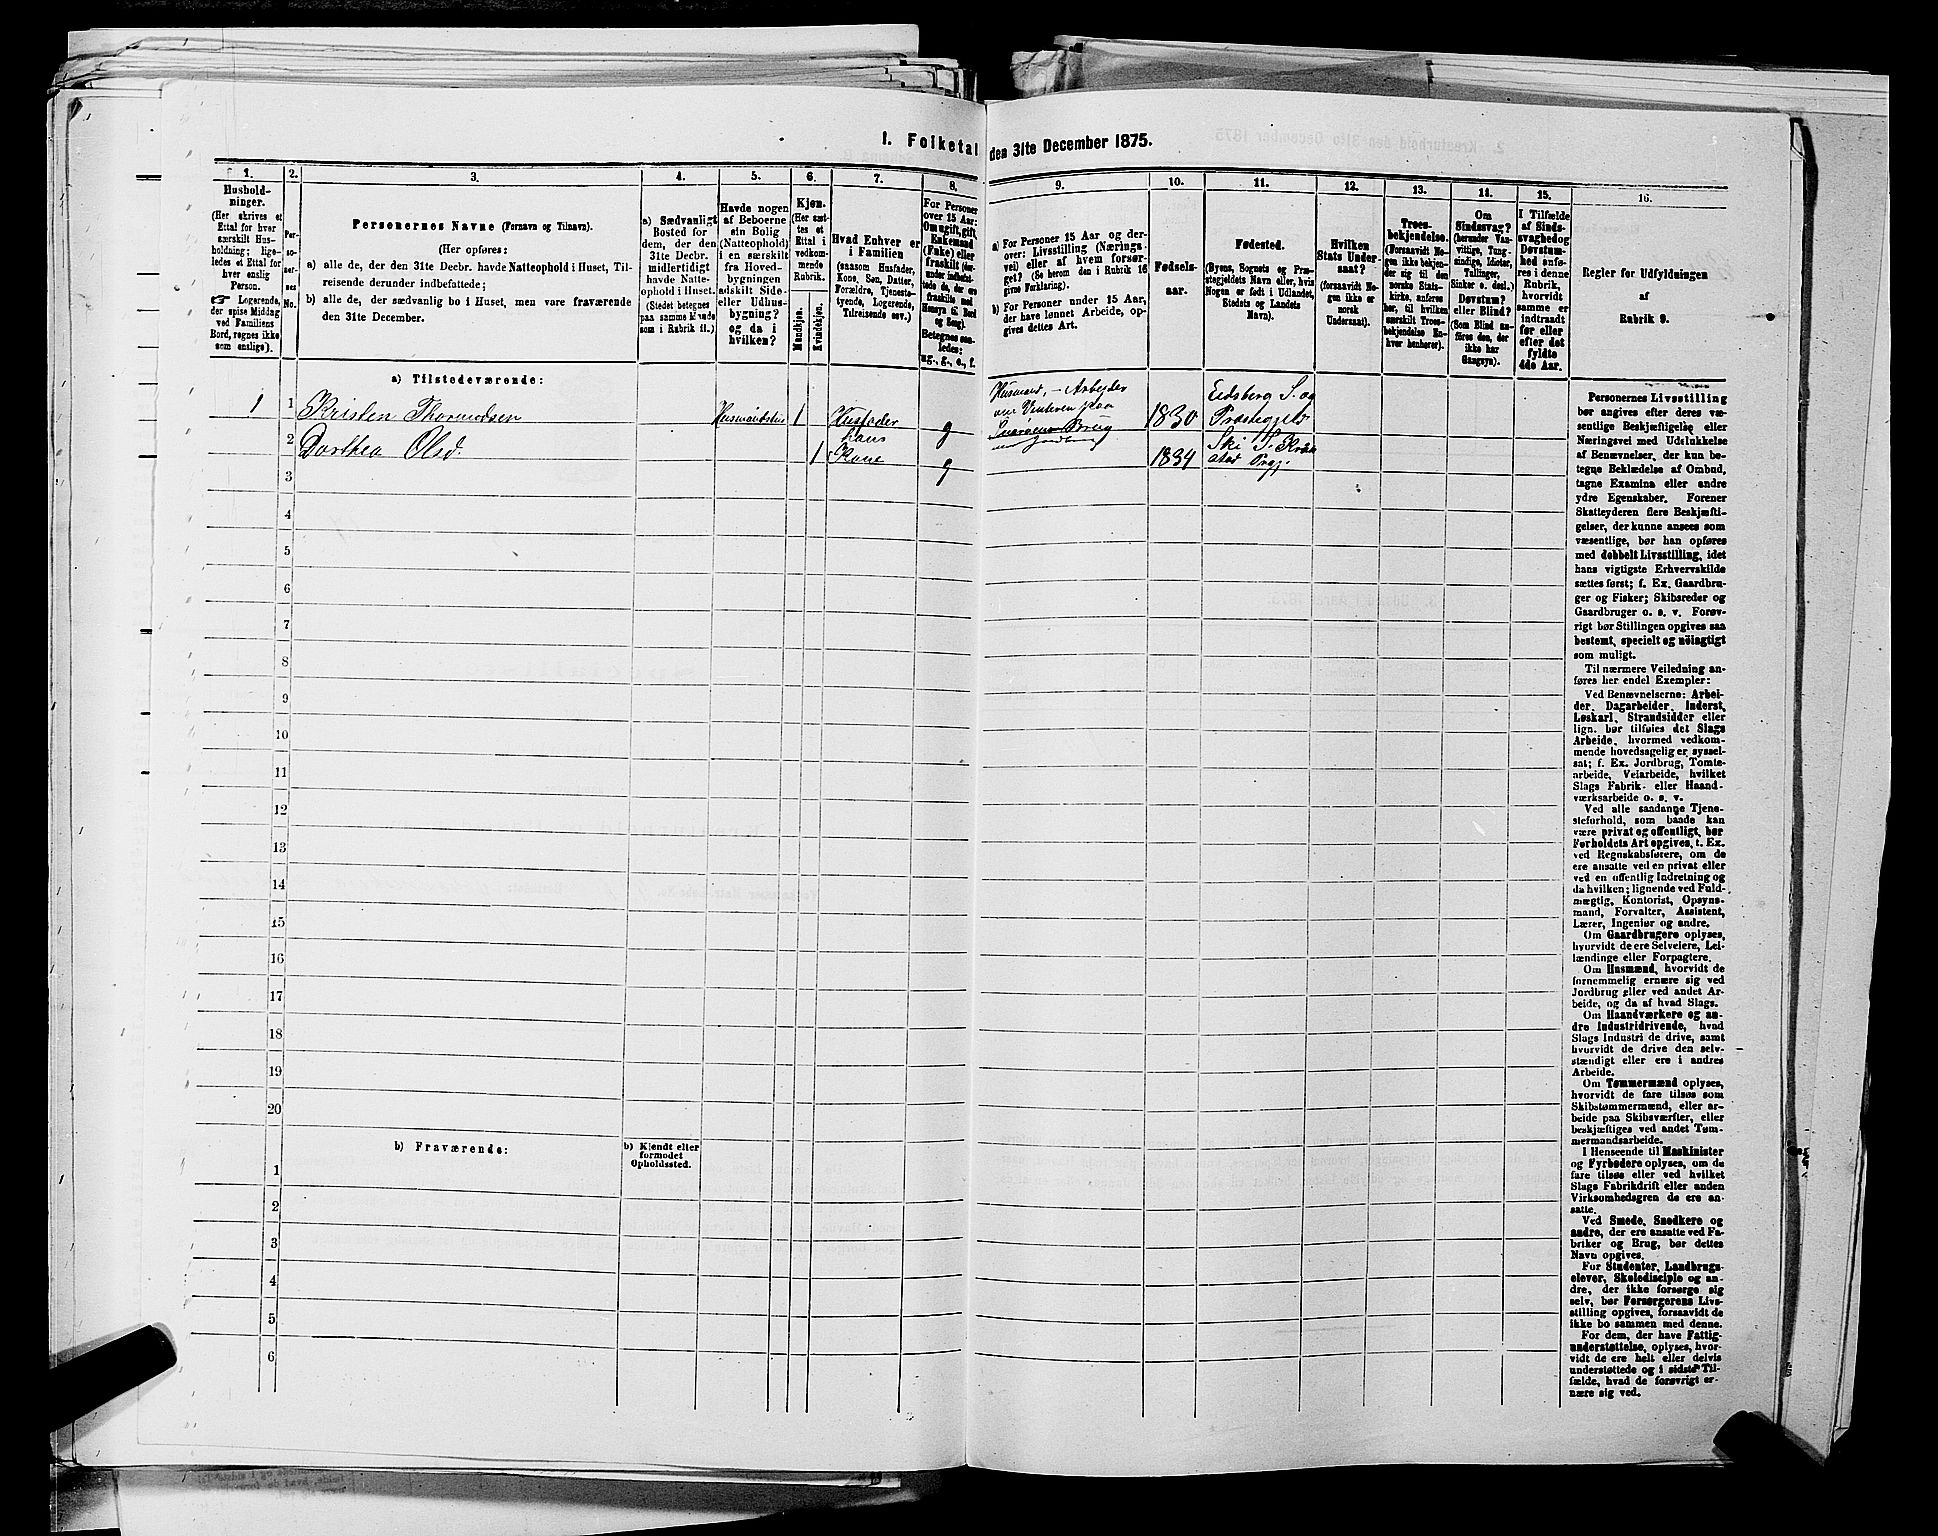 1. Folketal den 31te December 1875.
1.
Hushold-
ninger.
(Her skrives et
Ettal for hver
særskilt Hus-
holdning; lige-
ledes et Ettal for
hver enslig
Person.
☞ Logerende,
der spise Middag
ved Familiens
Bord, regnes ikke
som enslige).
2.
Per-
so-
ner-
nes
No.
3.
Personernes Navne (Fornavn og Tilnavn).
(Her opføres:
a) alle de, der den 31te Decbr. havde Natteophold i Huset, Til-
reisende derunder indbefattede;
b) alle de, der sædvanlig bo i Huset, men vare fraværende
den 31te December.
4.
a) Sædvanligt
Bosted for
dem, der den
31te Decbr.
midlertidigt
havde Natte-
ophold i Huset.
(Stedet betegnes
paa samme Maade
som i Rubrik 11.)
5.
Havde nogen
af Beboerne
sin Bolig
(Natteophold)
i en særskilt
fra Hoved-
bygningen
adskilt Side-
eller Udhus-
bygning?
og da i
hvilken?
6.
Kjøn.
(Her sæt-
tes et
Ettal i
vedkom-
mende
Rubrik.
Mandkjøn.
Kvindekjøn.
7.
Hvad Enhver er
i Familien
(saasom Husfader,
Kone, Søn, Datter,
Forældre, Tjeneste-
tyende, Logerende,
Tilreisende osv.).
8.
For Personer
over 15 Aar:
Om ugift, gift,
Enkemand
(Enke) eller
fraskilt (der-
under indbefat-
tede de, der ere
fraskilte med
Hensyn til Bord
og Seng).
Betegnes saa-
ledes:
ug., g., e., f.
9.
a) For Personer 15 Aar og der-
over: Livsstilling (Nærings-
vei) eller af hvem forsør-
get? (Se herom den i Rubrik 16
givne Forklaring).
b) For Personer under 15 Aar,
der have lønnet Arbeide, op-
gives dettes Art.
10.
Fødsels-
aar.
11.
Fødested.
(Byens, Sognets og Præ-
stegjeldets Navn eller, hvis
Nogen er født i Udlandet,
Stedets og Landets
Navn).
12.
Hvilken
Stats Under-
saat?
(forsaavidt No-
gen ikke er
norsk
Undersaat).
13.
Troes-
bekjendelse.
(Forsaavidt No-
gen ikke bekjen-
der sig til den
norske Stats-
kirke, anføres
her, til hvilken
særskilt Troes-
bekjendelse En-
hver henhører).
14.
Om
Sindssvag?
(herunder Van-
vittige, Tung-
sindige, Idioter,
Tullinger,
Sinker o. desl.)
Døvstum?
eller Blind?
(Som Blind an-
føres den, der
ikke har
Gangsyn).
15.
I Tilfælde
af Sinds-
svaghed og
Døvstum-
hed anfø-
res i denne
Rubrik,
hvorvidt
samme er
indtraadt
før eller
efter det
fyldte
4de Aar.
16.
Regler for Udfyldningen
af
Rubrik 9.
a) Tilstedeværende:
1 1 Kristen Thormodsen Husmandsstue 1 Husfader g Husmand, - Arbejder
om Vinteren paa
Brug
1830 Eidsberg S. og
Præstegjeld
2 Dorthea Olsd. 1 hans
Kone g 1834 Ski S. Kraak-
stad Prgj.
3
4
5
6
7
8
9
10
11
12
13
14
15
16
17
18
19
20
b) Fraværende:
b) Kjendt eller
formodet
Opholdssted.
1
2
3
4
5
6
Personernes Livsstilling
bør angives efter deres væ-
sentlige Beskjæftigelse eller
Næringsvei med Udelukkelse
af Benævnelser, der kun be-
tegne Beklædelse af Ombud,
tagne Examina eller andre
ydre Egenskaber. Forener
Skatteyderen flere Beskjæfti-
gelser, der kunne ansees som
væsentlige, bør han opføres
med dobbelt Livsstilling, idet
hans vigtigste Erhvervskilde
sættes først; f. Ex. Gaardbru-
ger og Fisker; Skibsreder og
Gaardbruger o. s. v. Forøv-
rigt bør Stillingen opgives saa
bestemt, specielt og nöiagtigt
som muligt.
Til nærmere Veiledning an-
føres her endel Exempler:
Ved Benævnelserne: Arbei-
der, Dagarbeider, Inderst,
Løskarl, Strandsidder eller
lign. bør tilføies det Slags
Arbeide, hvormed vedkom-
mende hovedsagelig er syssel-
sat; f. Ex. Jordbrug, Tomte-
arbeide, Veiarbeide, hvilket
Slags Fabrik- eller Haand-
værksarbeide o. s. v.
Ved alle saadanne Tjene-
steforhold, som baade kan
være privat og offentligt, bør
Forholdets Art opgives, t. Ex.
ved Regnskabsførere, om de
ere ansatte ved en privat eller
ved en offentlig Indretning og
da hvilken; lignende ved Fuld-
mægtig, Kontorist, Opsyns-
mand, Forvalter, Assistent,
Lærer, Ingeniør og andre.
Om Gaardbrugere oplyses,
hvorvidt de ere Selveiere, Lei-
lændinge eller Forpagtere.
Om Husmænd, hvorvidt de
fornemmelig ernære sig ved
Jordbrug eller ved andet Ar-
beide, og da af hvad Slags.
Om Haandværkere og an-
dre Industridrivende, hvad
Slags Industri de drive, samt
hvorvidt de drive den selv-
stændigt eller ere i andres
Arbeide.
Om Tømmermænd oplyses,
hvorvidt de fare tilsøs som
Skibstømmermænd, eller ar-
beide paa Skibsværfter, eller
beskjæftiges ved andet Tøm-
mermandsarbeide.
I Henseende til Maskinister
og Fyrbødere oplyses, om de
fare tilsøs eller ved hvilket
Slags Fabrikdrift eller anden
Virksomhedsgren de ere an-
satte.
Ved Smede, Snedkere og
andre, der ere ansatte ved Fa-
briker og Brug, bør dettes
Navn opgives.
For Studenter, Landbrugs-
elever, Skoledisciple og an-
dre, der ikke forsørge sig
selv, bør Forsørgerens Livs-
stilling opgives, forsaavidt de
ikke bo sammen med denne.
For dem, der have Fattig-
understøttelse, oplyses, hvor-
vidt de ere helt eller delvis
understøttede og i sidste Til-
fælde, hvad de forøvrigt er-
nære sig ved.